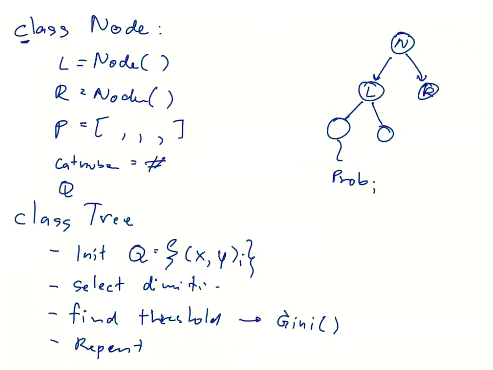 class Node:
L = Node( )
R = Node( )
P = [ , , , ]
= #
Q
class Tree
- Init Q = {(x, y)i}
- select
- find threshold → Gini( )
- Repeat
N
L
R
Probi